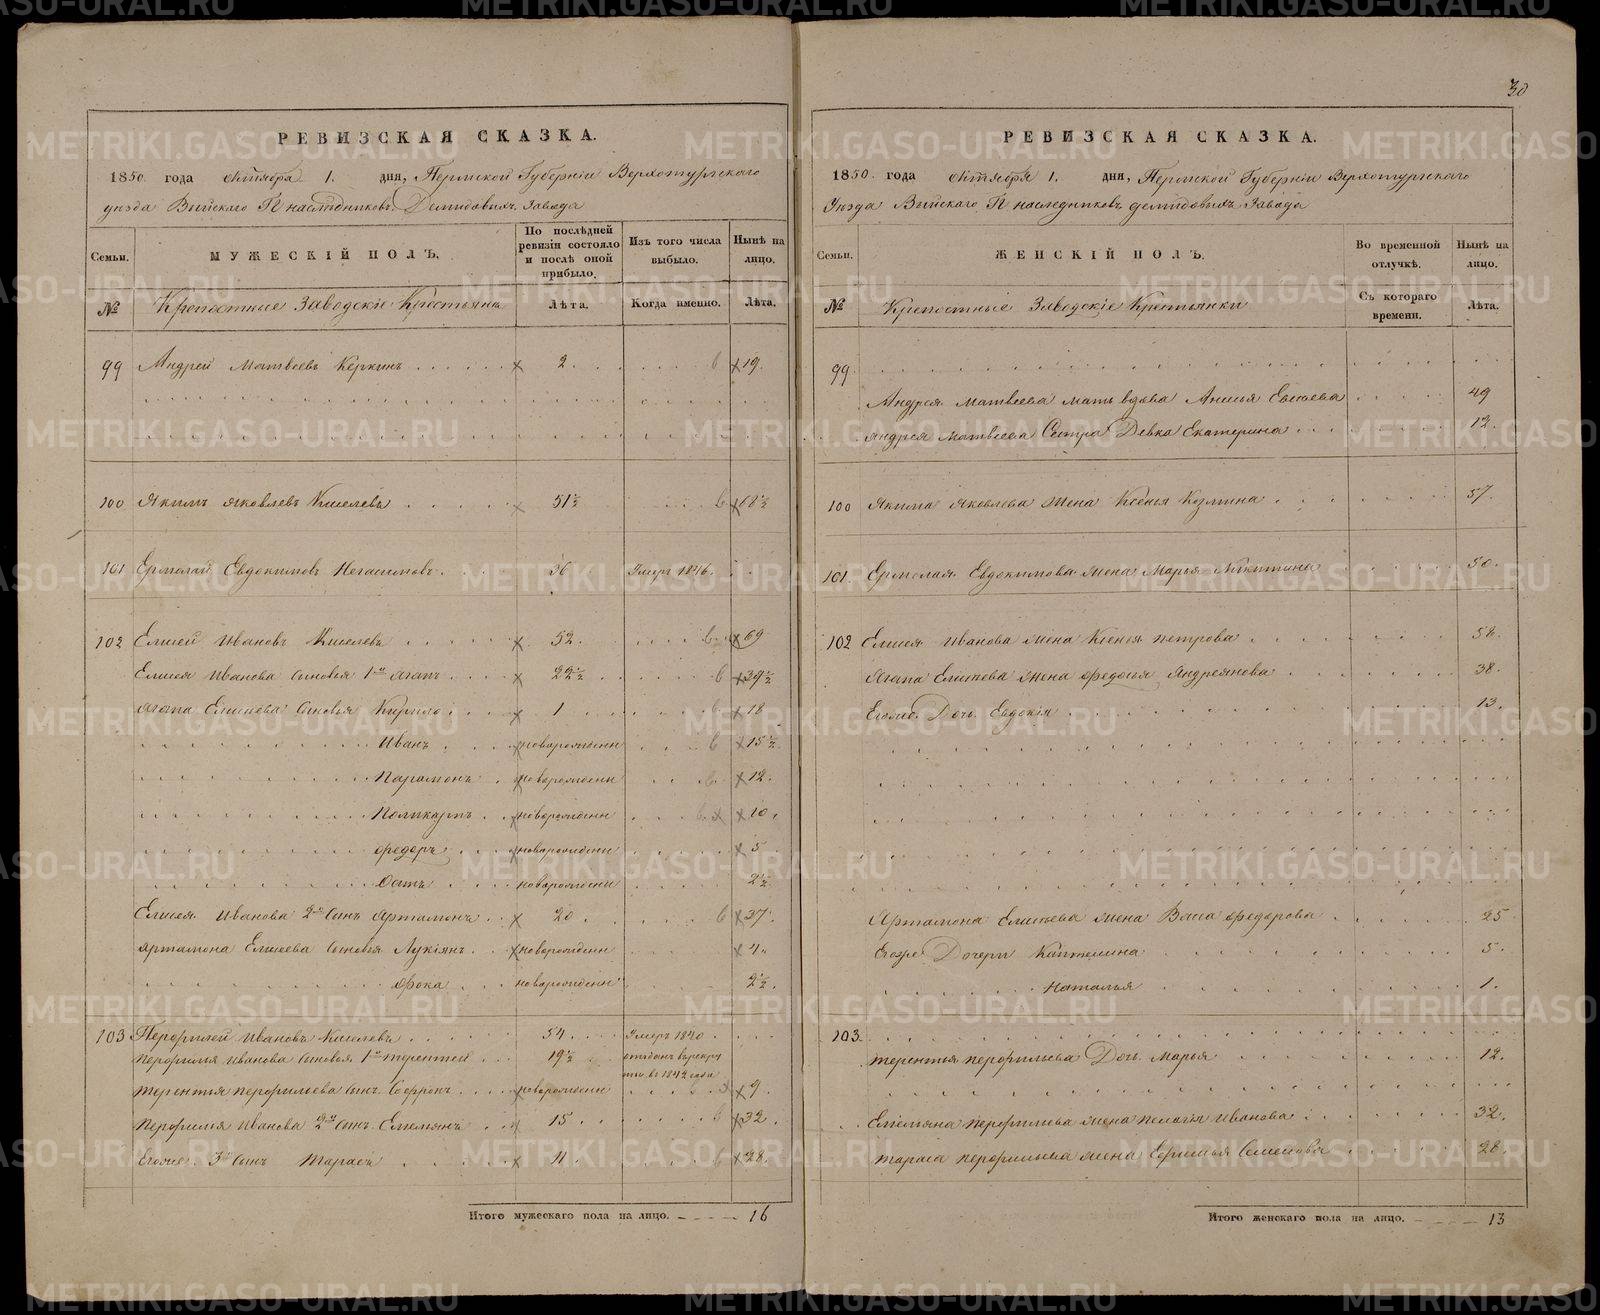 30
РЕВИЗСКАЯ СКАЗКА.
1850. года октября 1. дня, Пермской Губерніи Верхотурскаго
уезда Выйскаго Гг наследниковъ Демидовыхъ Завода
Семьи.
МУЖЕСКІЙ ПОЛЪ.
По послѣдней ревизіи состояло и послѣ оной прибыло.
Изъ того числа выбыло.
Нынѣ на лицо.
№
Крепостные Заводскіе Крестьяна
Лѣта.
Когда именно.
Лѣта.
99 Андрей Матвеевъ Керкинъ 2 19.
100 Яким Яковлевъ Киселевъ 51½ 68½
101 Ермолай Евдокимовъ 36 Умеръ 1846.
102 Елисей Ивановъ Киселевъ 52. 69
Елисея Иванова сыновья 1й Агапъ 22½ 39½
Агапа Елисеева сыновья Кирило 1 18
Иванъ новорожденн 15½
Парамонъ новорожденн 12.
Поликарпъ новорожденн 10.
Федоръ новорожденн 5
Осипъ новорожденн 2½
Елисея Иванова 2й сынъ Артамонъ 20. 37.
Артамона Елисеева сыновья Лукіянъ новорожденн 4.
Фока новорожденн 2½.
103 Перфилей Ивановъ Киселевъ 54. Умеръ 1840
Перфилья Иванова сыновья 1й Терентей 19½ отданъ в рекруты в 1842 года
Терентья Перфильева сынъ Софронъ новорожденн 9
Перфилья Иванова 2й сынъ Емельянъ 15 32
Егоже 3й сынъ Тарасъ 11 28.
Итого мужескаго пола на лицо. 16
РЕВИЗСКАЯ СКАЗКА.
1850. года октября 1. дня, Пермской Губерніи Верхотурскаго
Уезда Выйскаго Гг наследниковъ демидовыхъ Завода
Семьи.
ЖЕНСКІЙ ПОЛЪ.
Во временной отлучкѣ.
Нынѣ на лицо.
№
Крепостные Заводскіе Крестьянки
Съ котораго времени.
Лѣта.
99
Андрея Матвеева мать вдова Анисья Евсеева 49
Андрея Матвеева Сестра Девка Екатерина 12.
100 Якима Яковлева жена Ксенья Козмина 57.
101. Ермолая Евдокимова жена Марья Никитина 50.
102 Елисея Иванова жена Ксенья петрова 58.
Агапа Елисеева жена Федосья Андреянова 38.
Егоже Дочь Евдокія 13.
Артамона Елисеева жена Васа Федорова 25
Егоже Дочери Каптелина 5.
Наталья 1.
103.
Терентья перфильева Дочь Марья 12.
Емельяна перфильева жена пелагья Иванова 32.
Тараса перфильева жена Ефимья Семенова 28.
Итого женскаго пола на лицо. 13
METRIKI.GASO-URAL.RU